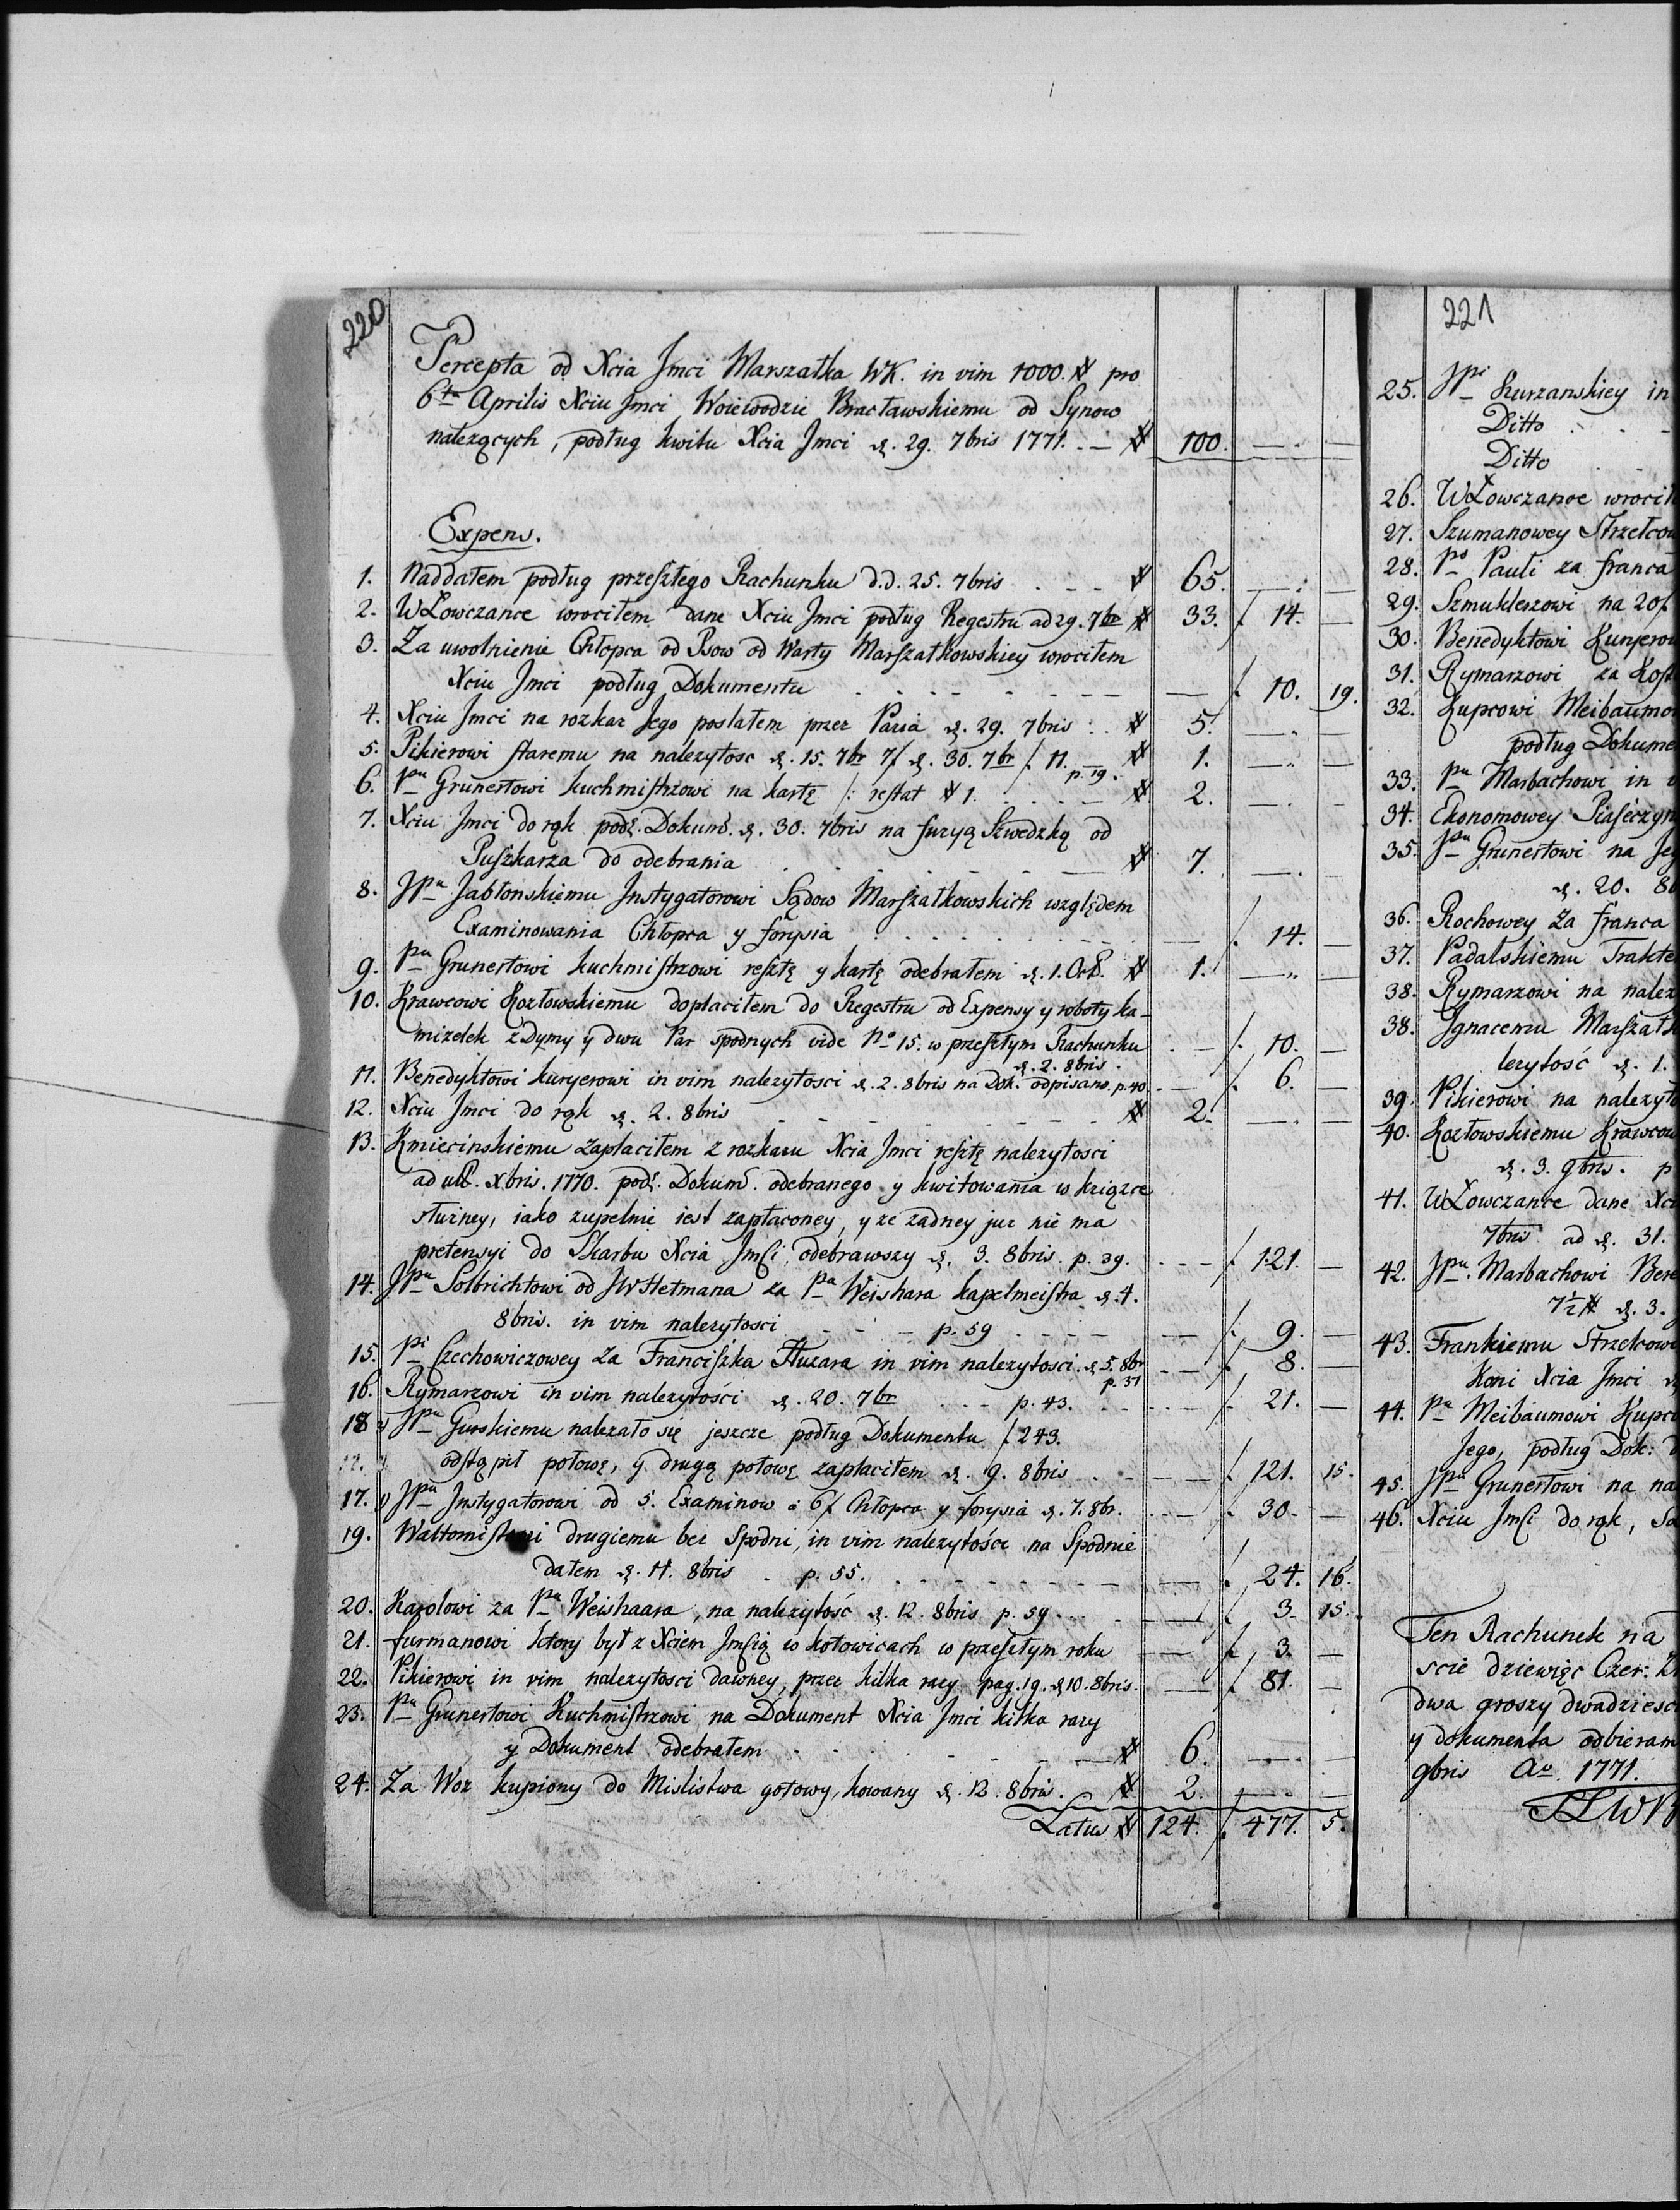 220
Percepta od Xcia Jmci Marszałka WK. in vim 1000. # pro
6ta Aprilis Xciu Jmci Woiewodzie Bracławskiemu od Synow
należących, podług kwitu Xcia Jmci d. 29. 7bris 1771. — # 100. — —
Expens.
1. Naddałem podług przeszłego Rachunku d.d. 25. 7bris . . - # 65. — —
2. WŁowczance wrociłem dane Xciu Jmci podług Regestru ad 29. 7br # 33. f. 14. —
3. Za uwolnienie Chłopca od Psow od Warty Marszałkowskiey wrociłem
Xciu Jmci podług Dokumentu — f. 10. 19.
4. Xciu Jmci na rozkaz Jego posłałem przez Pazia d. 29. 7bris : . # 5. — —
5. Pikierowi staremu na należytosc d. 15. 7br 7f d. 30. 7br f. 11. — # 1. — —
p. 19.
6. Pnu Grunertowi kuchmistrzowi na kartę /: restat # 1. . . . — # 2. — —
7. Xciu Jmci do rąk podł. Dokum. d. 30. 7bris na furyą Szwedzką od
Puszkarza do odebrania # 7. — —
8. JPnu Jabłonskiemu Instygatorowi Sądow Marszałkowskich względem
Examinowania Chłopca y forysia — f. 14. —
9. Pnu Grunertowi kuchmistrzowi resztę y kartę odebrałem d. 1. Octb. # 1. — —
10. Krawcowi Kozłowskiemu dopłaciłem do Regestru od Expensy y roboty ka-
mizelek z Dymy y dwu Par spodnych vide No 15. w przeszłym Rachunku — f. 10. —
d. 2. 8bris.
11. Benedyktowi kuryerowi in vim należytosci d. 2. 8bris na Dok. odpisano. p. 40. — f. 6. —
12. Xciu Jmci do rąk d. 2. 8bris # 2. — —
13. Kmiecinskiemu zapłaciłem z rozkazu Xcia Jmci resztę należytosci
ad ult. Xbris. 1770. podł. Dokum. odebranego y kwitowania w książce
służney, iako zupełnie iest zapłaconey, y ze zadney juz nie ma
pretensyi do Skarbu Xcia Jmsci, odebrawszy d. 3. 8bris. p. 39. . - - f. 121. —
14. JPnu Solbrichtowi od JWHetmana za Pa Weishara kapelmeistra d. 4.
8bris. in vim nalezytosci - - - p. 59 - - - — f. 9. —
15. Pi Czechowiczowey za Franciszka Huzara in vim nalezytosci d. 5. 8br — f. 8. —
p. 37
16. Rymarzowi in vim należytości d. 20. 7br . . - p. 43. . - - - f. 21. —
18 JPnu Gurskiemu należało się jeszcze podług Dokumentu f. 243.
odstąpił połowę, y drugą połowę zapłaciłem d. 9. 8bris . - — f. 121. 15.
17. JPnu Instygatorowi od 5. Examinow à 6f Chłopca y forysia d. 7. 8br. — f. 30. —
19. Waltornistowi drugiemu bez Spodni, in vim należytości na Spodnie
dałem d. 11. 8bris - p. 55. — f. 24. 16.
20. Karolowi za Pnu Weishaara, na nalezytość d. 12. 8bris p. 59. . . — f. 3. 15.
21. furmanowi ktory był z Xciem Jmscią w kotowicach w przeszłym roku — f. 3. —
22. Pikierowi in vim należytosci dawney, przez kilka razy pag. 19. d. 10. 8bris. — f. 81. —
23. Pnu Grunertowi Kuchmistrzowi na Dokument Xcia Jmci kilka razy
y Dokument odebrałem # 6. — —
24. Za Woz kupiony do Mislistwa gotowy, kowany d. 12. 8bris. # 2. — —
Latus # 124. f. 477. 5.
221
25. JPi Kurzanskiey in
Ditto . - -
Ditto
26. WŁowczance wrocił
27. Szumanowey Strzelcow
28. Po Pauli za franca
29. Szmuklerzowi na 20f
30. Benedyktowi Kuryerow
31. Rymarzowi za Kosz
32. Kupcowi Meibaumow
podług Dokume
33. Pnu Marbachowi in v
34. Ekonomowey Piaseczyn
35. JPnu Grunertowi na Jeg
d. 20. 8b
36. Rochowey za franca
37. Padalskiemu Trakte
38. Rymarzowi na nalez
38. Ignacemu Marszałk
lezytość d. 1.
39. Pikierowi na nalezyto
40. Kozłowskiemu Krawcow
d. 3. 9bris. p
41. WŁowczance dane Xci
7bris ad d. 31.
42. JPnu. Marbachowi Bere
7½ # d. 3.
43. Frankiemu Strzelcowi
Koni Xcia Jmci d
44. Pu Meibaumowi Kupco
Jego, podług Dok: d
45. JPnu Grunertowi na na
46. Xciu Jmsci do rąk, Sa
Ten Rachunek na
scie dziewięc Czer: Z
dwa groszy dwadziesc
y dokumenta odbieram
9bris Ao 1771.